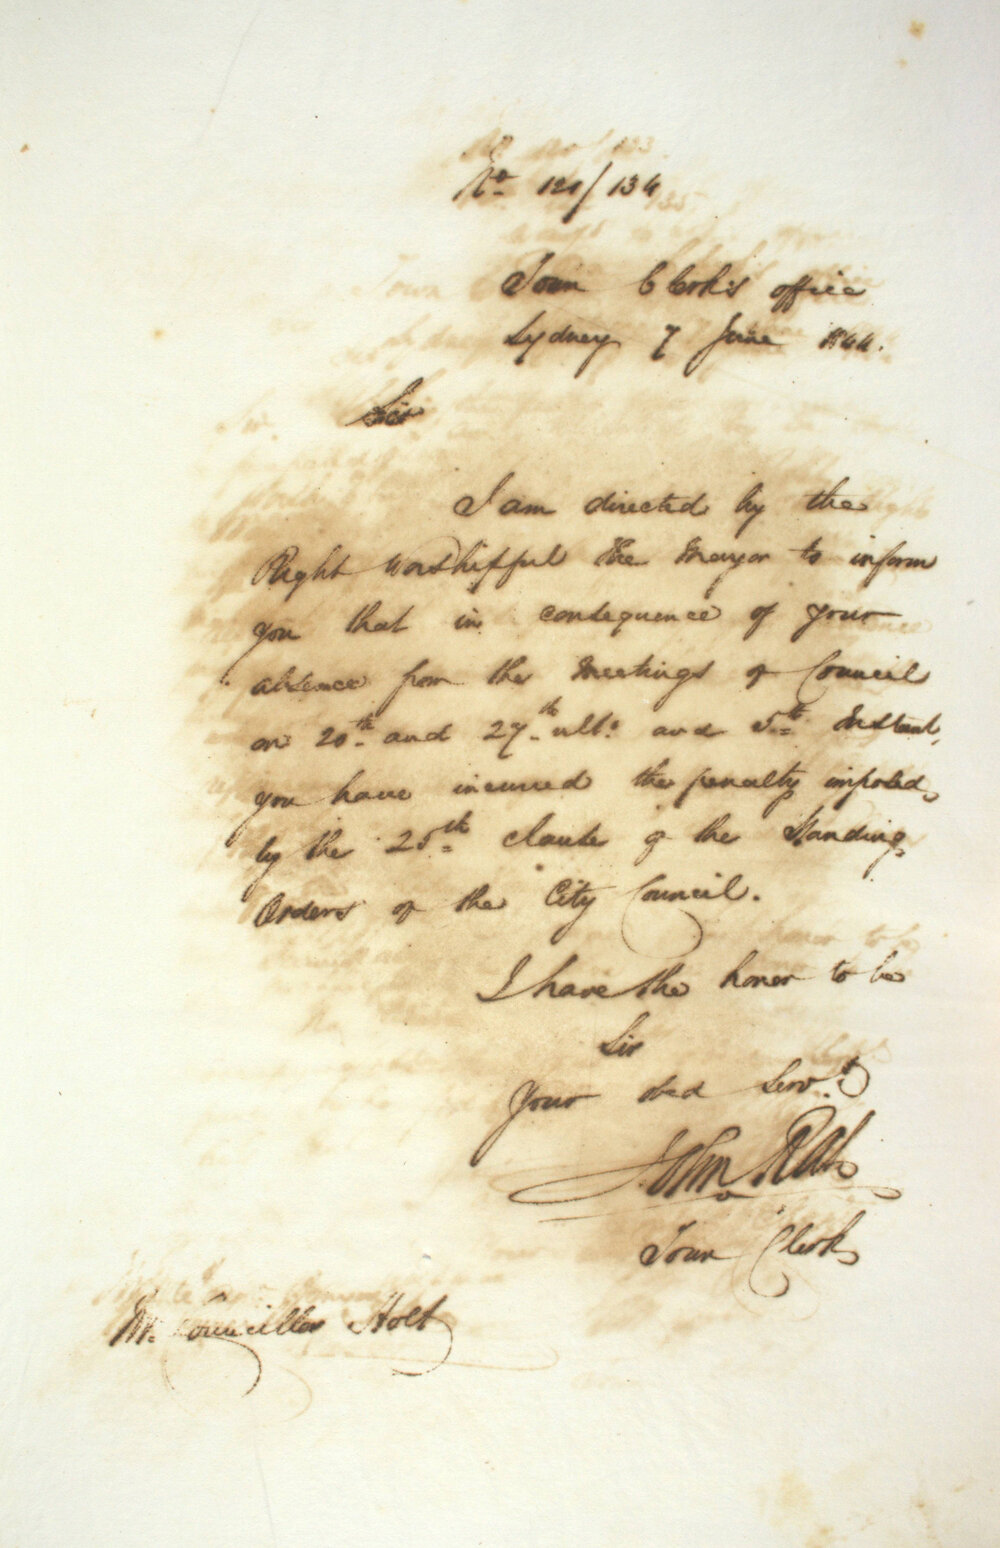 No. 120/134
Town Clerk's office
Sydney 7 June 1844.
Sir
I am directed by the
Right Worshipful the Mayor to inform
you that in consequence of your
absence from the Meetings of Council
on 20th and 27th ulto. and 5th Instant,
you have incurred the penalty imposed
by the 25th clause of the Standing
Orders of the City Council.
I have the honor to be
Sir
Your obed Servt.
John Rae
Town Clerk
Mr. Councillor Holt